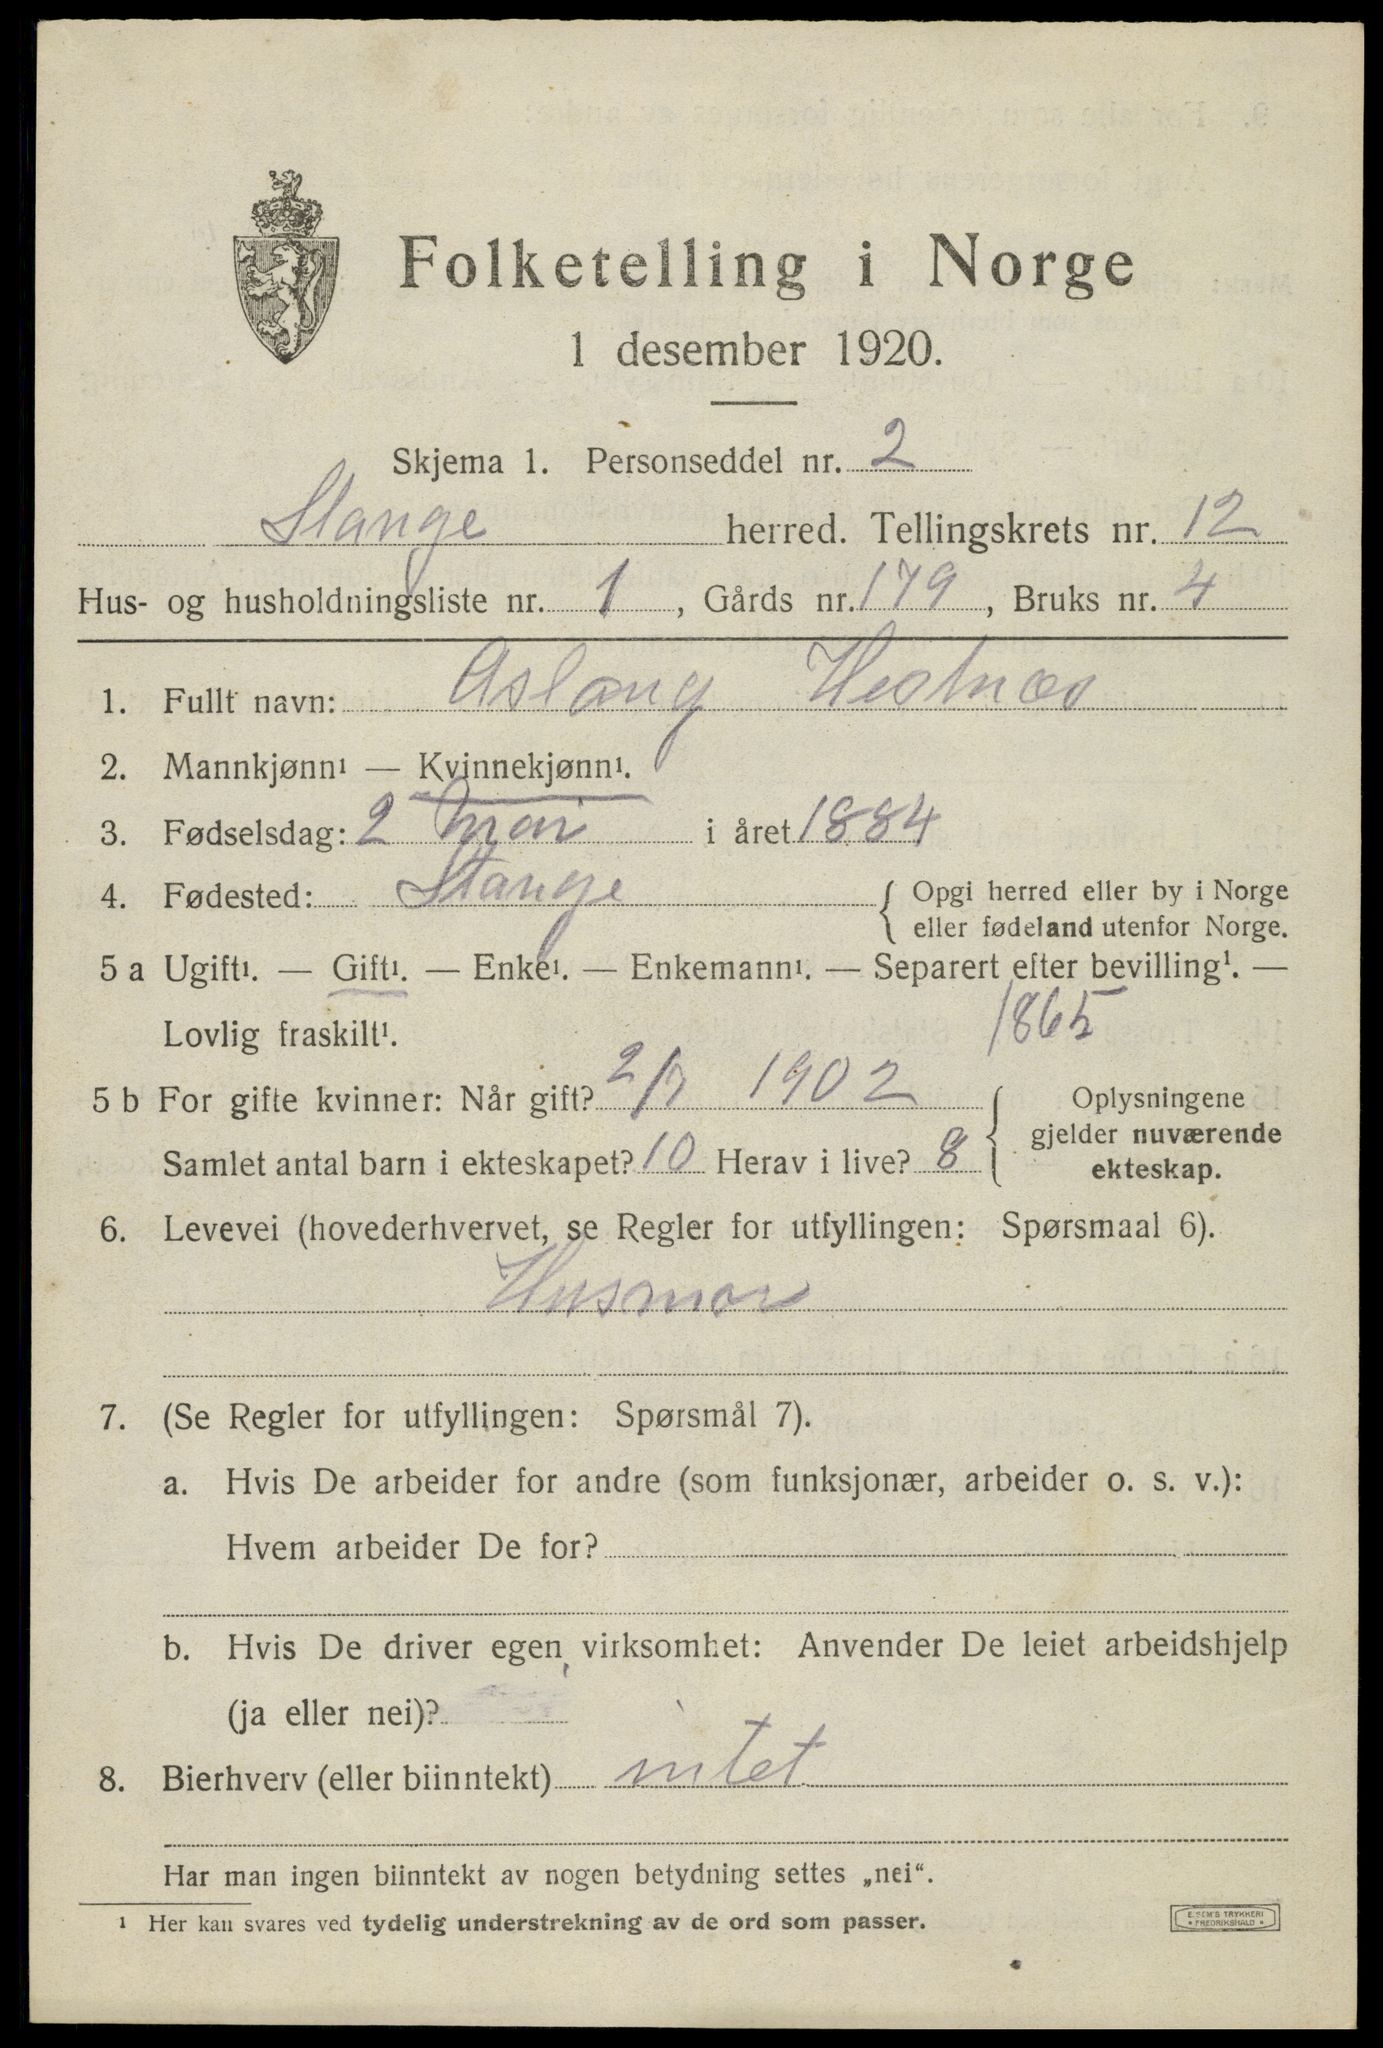 Folketelling i Norge
1 desember 1920.
Skjema 1. Personseddel nr. 2
Stange herred. Tellingskrets nr. 12
Hus- og husholdningsliste nr. 1, Gårds nr. 179, Bruks nr. 4
1. Fullt navn: Aslaug Hestnæs
2. Mannkjønn¹ — Kvinnekjønn¹.
3. Fødselsdag: 2 mai i året 1884
4. Fødested: Stange { Opgi herred eller by i Norge
eller fødeland utenfor Norge.
5 a Ugift¹. — Gift¹. — Enke¹. — Enkemann¹. — Separert efter bevilling¹. —
Lovlig fraskilt¹. 1865
5 b For gifte kvinner: Når gift? 2/7 1902 { Oplysningene
gjelder nuværende
Samlet antal barn i ekteskapet? 10 Herav i live? 8 ekteskap.
6. Levevei (hovederhvervet, se Regler for utfyllingen: Spørsmaal 6).
Husmor
7. (Se Regler for utfyllingen: Spørsmål 7).
a. Hvis De arbeider for andre (som funksjonær, arbeider o. s. v.):
Hvem arbeider De for?
b. Hvis De driver egen virksomhet: Anvender De leiet arbeidshjelp
(ja eller nei)?
8. Bierhverv (eller biinntekt) intet
Har man ingen biinntekt av nogen betydning settes „nei“.
¹ Her kan svares ved tydelig understrekning av de ord som passer.
E. SEM'S TRYKKERI
• FREDRIKSHALD •